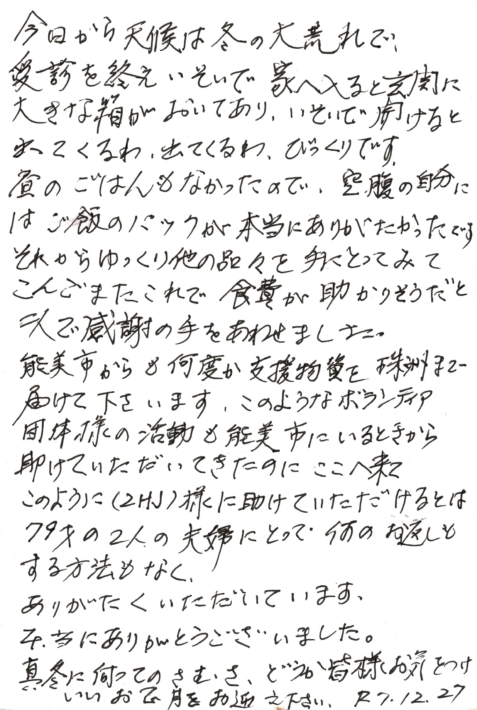 今日から天候は冬の大荒れで、
受診を終えいそいで家へ入ると玄関に
大きな箱がおいてあり、いそいで開けると
出てくるわ、出てくるわ、びっくりです
昼のごはんもなかったので、空腹の自分に
はご飯のパックが本当にありがたかったです
それからゆっくり他の品々を手にとってみて
こんごまたこれで食費が助かりそうだと
二人で感謝の手をあわせました。
能美市からも何度か支援物資を珠洲まで
届けて下さいます、このようなボランティア
団体様の活動も能美市にいるときから
助けていただいてきたのにここへ来て
このように(2HJ)様に助けていただけるとは
79才の2人の夫婦にとって何のお返しも
する方法もなく、
ありがたくいただいています、
本当にありがとうございました。
真冬に向ってのさむさ、どうか皆様お気をつけ
いいお正月をお迎え下さい、R7.12.27